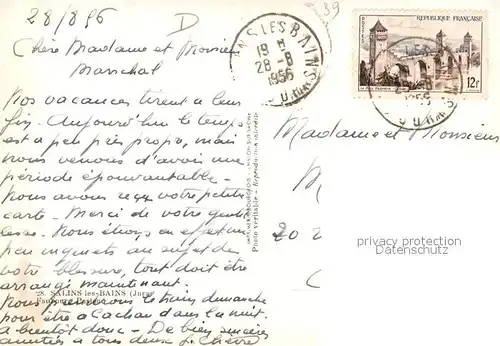 28/8/56
D
39
Chère Madame et Monsieur
Marchal
Nos vacances tirent a leur
fin. Aujourd'hui le temps
est a peu près propo, mais
nous venons d'avoir une
période épouvantable -
Nous avons reçu votre petite
carte - Merci de votre gentil
lesse. Nous étions en effet un
peu inquiets au sujet de
votre blessure, tout doit être
arrangé maintenant.
28. SALINS les-BAINS (Jura)
Nous prendrons le train dimanche
pour être a Cachan dans la nuit.
A bientôt donc - De bien sincères
amitiés a tous deux
Photo véritable - Reproduction interdite
NS LES BAINS
19 H
28 - 8
1956
JURA
REPUBLIQUE FRANÇAISE
12F
Madame et Monsieur
M
20
privacy protection by
Datenschutz